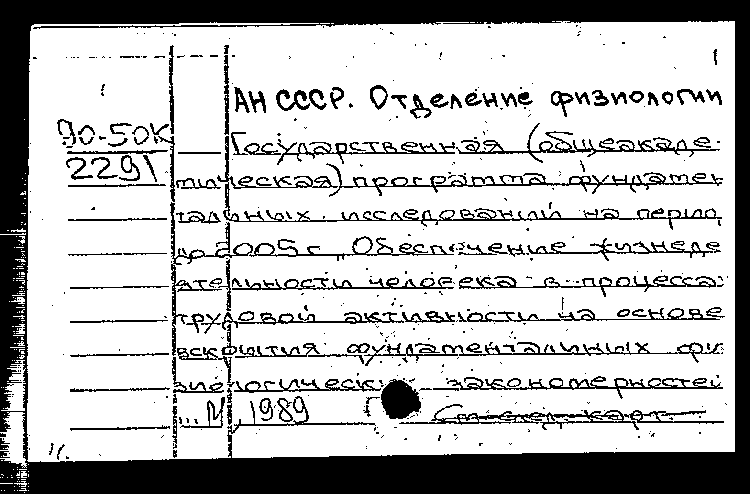 АН СССР. Отделение физиологии
90-50К
2291
Государственная (общеакаде-
мическая) программа фундамен
тальных исследований на период
до 2005 г. „Обеспечение жизнеде
ятельности человека в процессах
трудовой активности на основе
вскрытия фундаментальных фи
зиологических закономерностей
... М., 1989
См. след. карт.